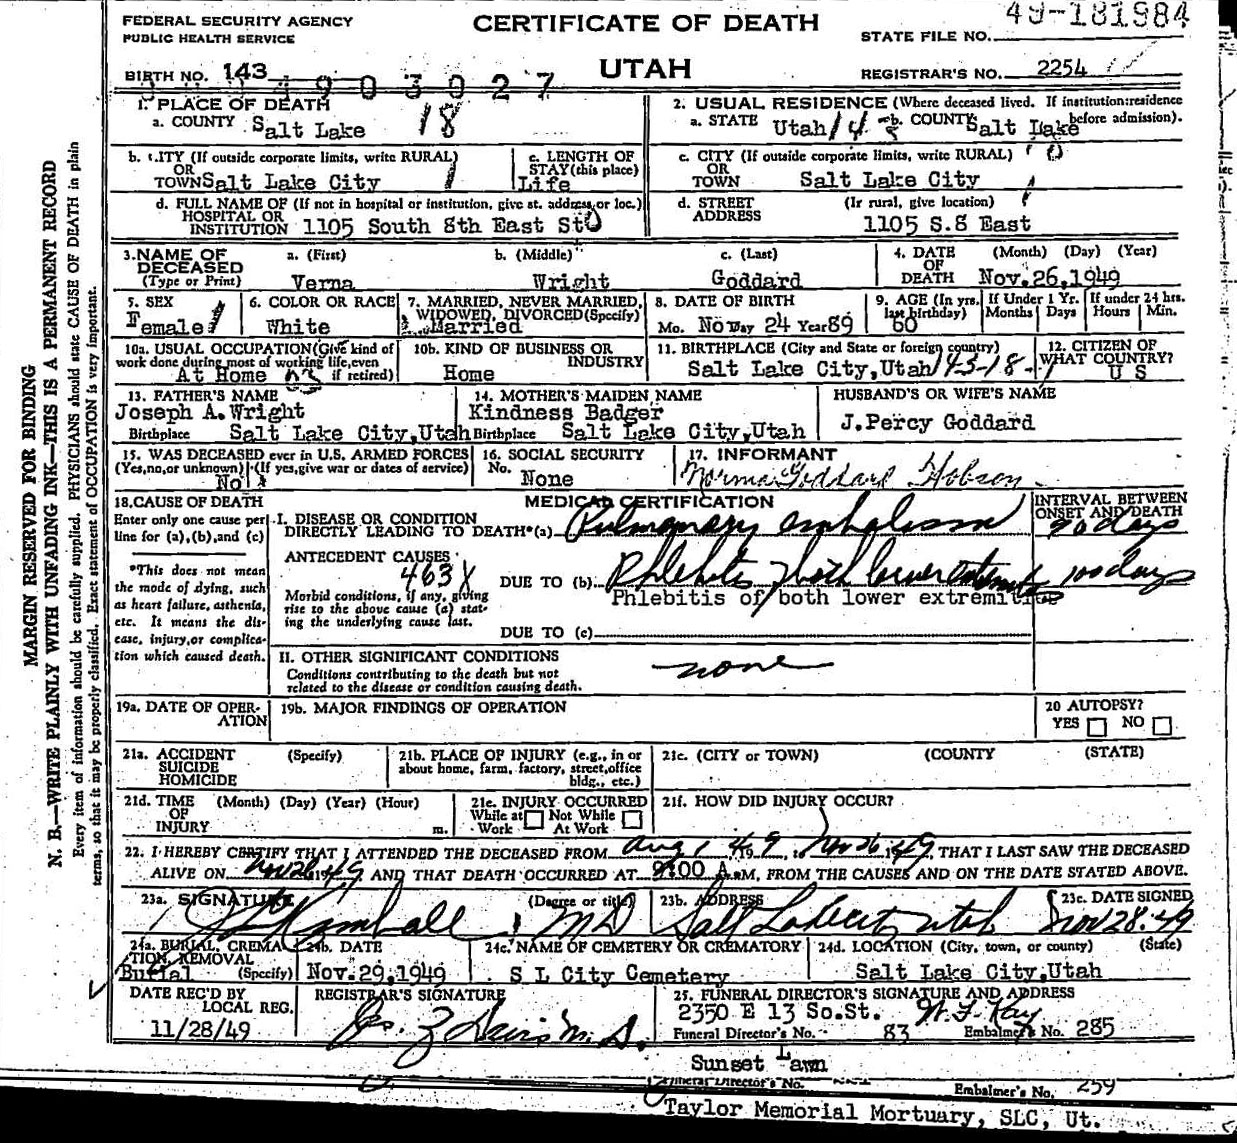 FEDERAL SECURITY AGENCY
PUBLIC HEALTH SERVICE
CERTIFICATE OF DEATH
49-181984
STATE FILE NO.
BIRTH NO. 143
4903027
UTAH
REGISTRAR'S NO. 2254
1. PLACE OF DEATH
a. COUNTY Salt Lake 18
2. USUAL RESIDENCE (Where deceased lived. If institution: residence before admission).
a. STATE Utah b. COUNTY Salt Lake
b. CITY (If outside corporate limits, write RURAL)
OR
TOWN Salt Lake City
c. LENGTH OF
STAY (this place)
Life
c. CITY (If outside corporate limits, write RURAL)
OR
TOWN Salt Lake City
d. FULL NAME OF (If not in hospital or institution, give st. address or loc.)
HOSPITAL OR
INSTITUTION 1105 South 8th East St
d. STREET (If rural, give location)
ADDRESS 1105 S.8 East
3. NAME OF DECEASED
(Type or Print)
a. (First) Verna
b. (Middle) Wright
c. (Last) Goddard
4. DATE OF DEATH (Month) (Day) (Year)
Nov.26,1949
5. SEX
Female
6. COLOR OR RACE
White
7. MARRIED, NEVER MARRIED,
WIDOWED, DIVORCED (Specify)
Married
8. DATE OF BIRTH
Mo. Nov Day 24 Year 89
9. AGE (In yrs. last birthday)
60
If Under 1 Yr. Months Days
If under 24 hrs. Hours Min.
10a. USUAL OCCUPATION (Give kind of
work done during most of working life, even
if retired)
At Home
10b. KIND OF BUSINESS OR INDUSTRY
Home
11. BIRTHPLACE (City and State or foreign country)
Salt Lake City,Utah
12. CITIZEN OF WHAT COUNTRY?
U S
13. FATHER'S NAME
Joseph A.Wright
Birthplace Salt Lake City,Utah
14. MOTHER'S MAIDEN NAME
Kindness Badger
Birthplace Salt Lake City,Utah
HUSBAND'S OR WIFE'S NAME
J.Percy Goddard
15. WAS DECEASED ever in U.S. ARMED FORCES
(Yes, no, or unknown) (If yes, give war or dates of service)
No
16. SOCIAL SECURITY
No. None
17. INFORMANT
Norma Goddard Hobson
18. CAUSE OF DEATH
Enter only one cause per
line for (a), (b), and (c)
*This does not mean
the mode of dying, such
as heart failure, asthenia,
etc. It means the dis-
ease, injury, or complica-
tion which caused death.
MEDICAL CERTIFICATION
INTERVAL BETWEEN
ONSET AND DEATH
I. DISEASE OR CONDITION
DIRECTLY LEADING TO DEATH*(a) Pulmonary embolism 90 days
ANTECEDENT CAUSES
463X
Morbid conditions, if any, giving
rise to the above cause (a) stat-
ing the underlying cause last.
DUE TO (b) Phlebitis of both lower extremities 100 days
Phlebitis of both lower extremities
DUE TO (c)
II. OTHER SIGNIFICANT CONDITIONS
Conditions contributing to the death but not
related to the disease or condition causing death.
none
19a. DATE OF OPER-
ATION
19b. MAJOR FINDINGS OF OPERATION
20 AUTOPSY?
YES NO
21a. ACCIDENT (Specify)
SUICIDE
HOMICIDE
21b. PLACE OF INJURY (e.g., in or
about home, farm, factory, street, office
bldg., etc.)
21c. (CITY or TOWN) (COUNTY) (STATE)
21d. TIME (Month) (Day) (Year) (Hour)
OF
INJURY m.
21e. INJURY OCCURRED
While at Work Not While At Work
21f. HOW DID INJURY OCCUR?
22. I HEREBY CERTIFY THAT I ATTENDED THE DECEASED FROM Aug 1, 1949, to Nov 26, 1949, THAT I LAST SAW THE DECEASED
ALIVE ON Nov 26 1949 AND THAT DEATH OCCURRED AT 9:00 A.M, FROM THE CAUSES AND ON THE DATE STATED ABOVE.
23a. SIGNATURE (Degree or title)
Kimball M D
23b. ADDRESS
Salt Lake City Utah
23c. DATE SIGNED
Nov 28-49
24a. BURIAL, CREMA-
TION, REMOVAL
Burial (Specify)
24b. DATE
Nov.29,1949
24c. NAME OF CEMETERY OR CREMATORY
S L City Cemetery
24d. LOCATION (City, town, or county) (State)
Salt Lake City,Utah
DATE REC'D BY
LOCAL REG.
11/28/49
REGISTRAR'S SIGNATURE
25. FUNERAL DIRECTOR'S SIGNATURE AND ADDRESS
2350 E 13 So.St.
Funeral Director's No. 83 Embalmer's No. 285
Sunset Lawn
Funeral Director's No. Embalmer's No. 259
Taylor Memorial Mortuary, SLC, Ut.
MARGIN RESERVED FOR BINDING
N. B.—WRITE PLAINLY WITH UNFADING INK—THIS IS A PERMANENT RECORD
Every item of information should be carefully supplied. PHYSICIANS should state CAUSE OF DEATH in plain
terms, so that it may be properly classified. Exact statement of OCCUPATION is very important.